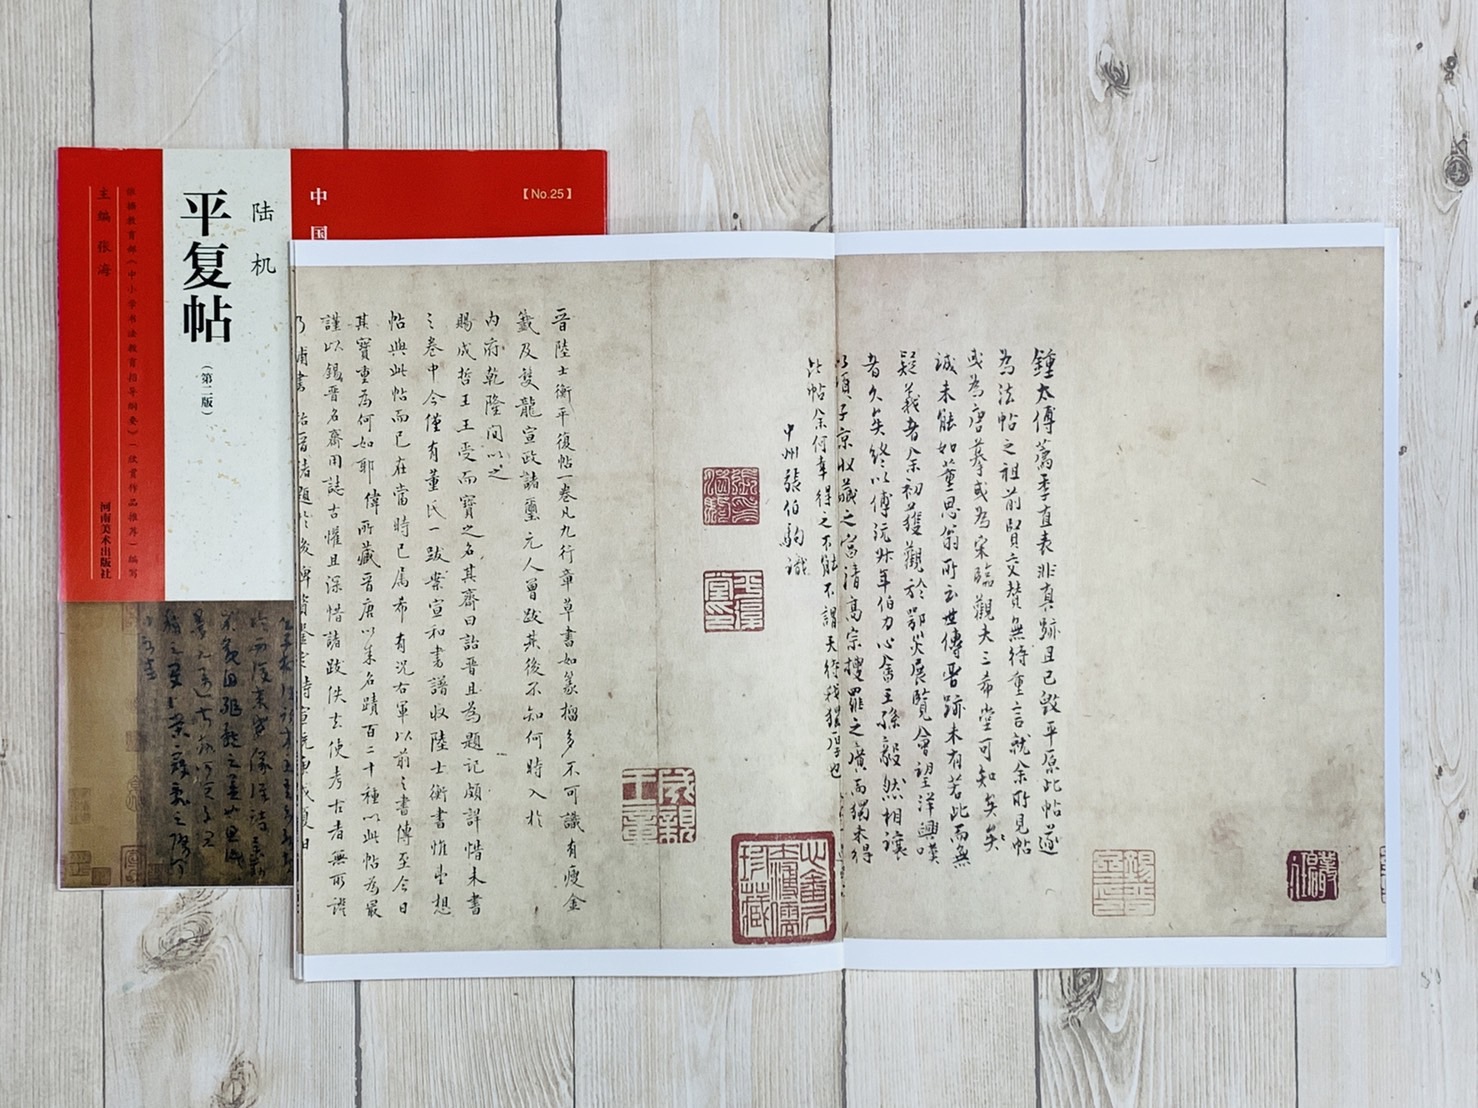 平复帖
陆机
(第二版)
主编 张海
根据教育部《中小学书法教育指导纲要》(欣赏作品推荐)编写
河南美术出版社
中国
【No.25】
鍾太傅薦季直表非真跡且已毀平原此帖遂
為法帖之祖前賢交贊無待重言就余所見帖
或為唐摹或為宋臨觀夫三希堂可知矣矣
誠未能如董思翁所云世傳晉跡未有若此而無
疑義者余初獲觀於鄂災展覽會望洋興嘆
者久矣終以傅沅叔年伯力心畬王孫毅然相讓
以項子京收藏之富清高宗搜羅之廣而獨未得
此帖余何幸得之不能不謂天待我獨厚也
中州張伯駒識
晉陸士衡平復帖一卷凡九行章草書如篆擂多不可識有瘦金
籤及雙龍宣政諸璽元人曾跋其後不知何時入於
內府乾隆間以之
賜成哲王王受而寶之名其齋曰詒晉且為題記頗詳惜未書
之卷中今僅有董氏一跋案宣和書譜收陸士衡書惟此想
帖與此帖而已在當時已屬希有況右軍以前之書傳至今日
其寶重為何如耶偉所藏晉唐以來名蹟百二十種以此帖為最
謹以錫晉名齋用誌古懽且深惜諸跋佚去使考古者無所證
成親
王章
平復
堂印
珍藏